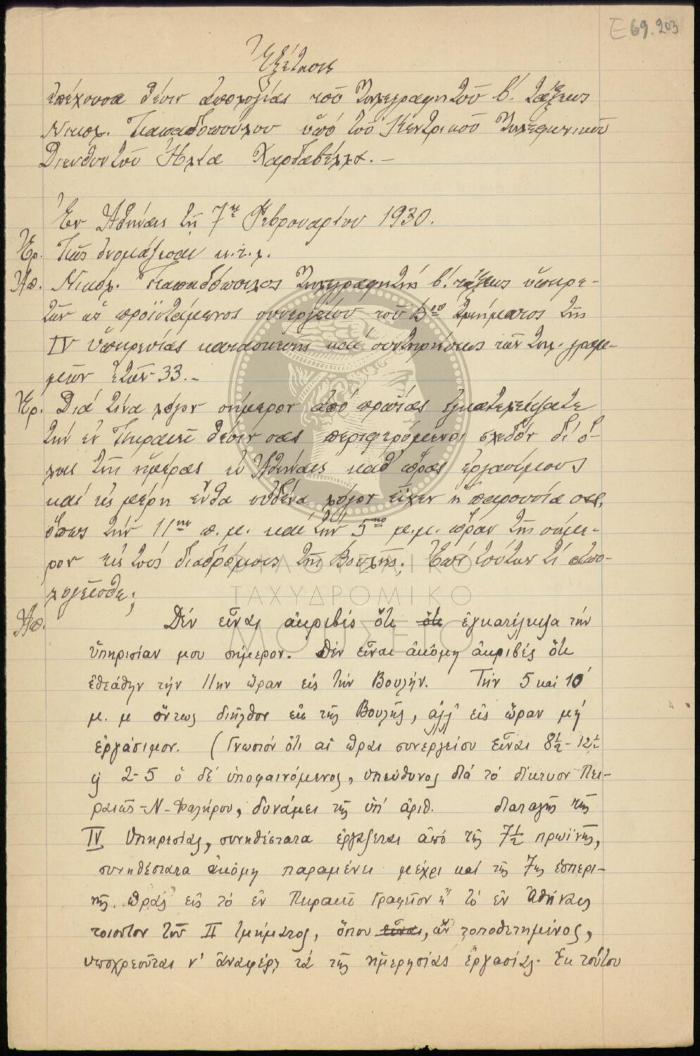 Ε 69.203
Ἐξέτασις
ἐπέχουσα θέσιν ἀπολογίας τοῦ Τηλεγραφητοῦ β΄. τάξεως
Νικολ. Παπαδοπούλου ὑπό τοῦ Κεντρικοῦ Τηλεφωνικοῦ
Διευθυντοῦ Ἠλία Χαρταβέλλα. —
Ἐν Ἀθήναις τῇ 7ῃ Φεβρουαρίου 1930.
Ἐρ. Πῶς ὀνομάζεσαι κ.τ.λ.
Ἀπ. Νικολ. Παπαδόπουλος Τηλεγραφητής β΄. τάξεως ὑπηρε-
τῶν ὡς προϊστάμενος συνεργείου τοῦ τμήματος τῆς
IV ὑπηρεσίας κατασκευῆς καί συντηρήσεως τῶν τηλ. γραμ-
μῶν ἐτῶν 33. —
Ἐρ. Διά τίνα λόγον σήμερον ἀπό πρωΐας ἐγκατελείψατε
τήν ἐν Πειραιεῖ θέσιν σας περιφερόμενος σχεδόν δι' ὅ-
λης τῆς ἡμέρας ἐν Ἀθήναις καθ' ὥρας ἐργασίμους
καί εἰς μέρη ἔνθα οὐδένα λόγον εἶχεν ἡ παρουσία σας,
ὅπως τήν 11ην π.μ. καί τήν 5ην μ.μ. ὥραν τῆς σήμε-
ρον εἰς τούς διαδρόμους τῆς Βουλῆς. Ἐπί τούτων τί ἀπο-
λογεῖσθε;
Ἀπ. Δέν εἶναι ἀκριβές ὅτι ὅτι ἐγκατέλειψα τήν
ὑπηρεσίαν μου σήμερον. Δέν εἶναι ἀκόμη ἀκριβές ὅτι
ἐθεάθην τήν 11ην ὥραν εἰς τήν Βουλήν. Τήν 5 καί 10'
μ. μ ὄντως διῆλθον ἐκ τῆς Βουλῆς, ἀλλ' εἰς ὥραν μή
ἐργάσιμον. (Γνωστόν ὅτι αἱ ὧραι συνεργείου εἶναι 8½ - 12½
ἤ 2-5 ὁ δέ ὑποφαινόμενος, ὑπεύθυνος διά τό δίκτυον Πει-
ραιῶς-Ν-Φαλήρου, δυνάμει τῆς ὑπ' ἀριθ. διαταγῆς τῆς
IV Ὑπηρεσίας, συνηθέστατα ἐργάζεται ἀπό τῆς 7½ πρωϊνῆς,
συνηθέστατα ἀκόμη παραμένει μέχρι καί τῆς 7ης ἑσπερι-
νῆς ὥρας εἰς τό ἐν Πειραιεῖ Γραφεῖον ἤ τό ἐν Ἀθήναις
τοιοῦτον τοῦ II τμήματος, ὅπου εἶναι, ἄν τοποθετημένος,
ὑποχρεοῦται ν' ἀναφέρῃ τά τῆς ἡμερησίας ἐργασίας. Ἐκ τούτου
ΦΙΛΟΤΕΛΙΚΟ
ΤΑΧΥΔΡΟΜΙΚΟ
ΜΟΥΣΕΙΟ